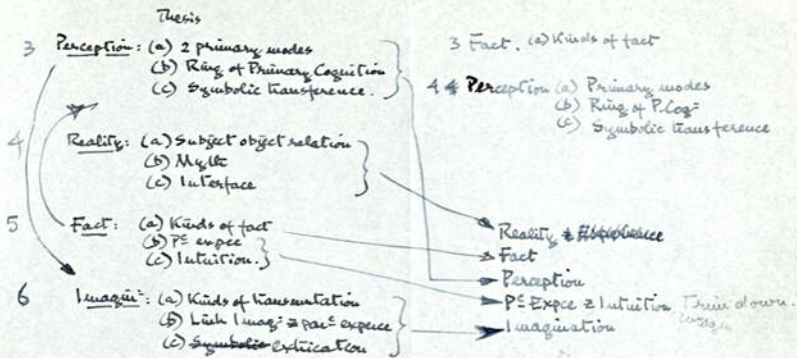 Thesis
3 Perception: (a) 2 primary modes
(b) Ring of Primary Cognition
(c) Symbolic transference.
4 Reality: (a) Subject object relation
(b) Myth
(c) Interface
5 Fact: (a) Kinds of fact
(b) Pc expce
(c) Intuition.
6 Imagin: (a) Kinds of transmutation
(b) Link Imag
(c) Symbolic extrication
3 Fact. (a) Kinds of fact
4 4 Perception (a) Primary modes
(b) Ring of P. Cog
(c) Symbolic transference
Reality & Experience
Fact
Perception
Pc Expce & Intuition Trim down.
Imagination